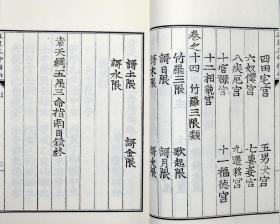 四田宅宮　五男女宮
六奴僕宮　七妻妾宮
八疾厄宮　九遷移宮
十官祿宮　十一福德宮
十二相貌宮
卷之十四　竹羅三限類
竹羅三限　歌起限
謌日限　謌月限
謌土限　謌金限
謌水限
袁天綱五星三命指南目錄終